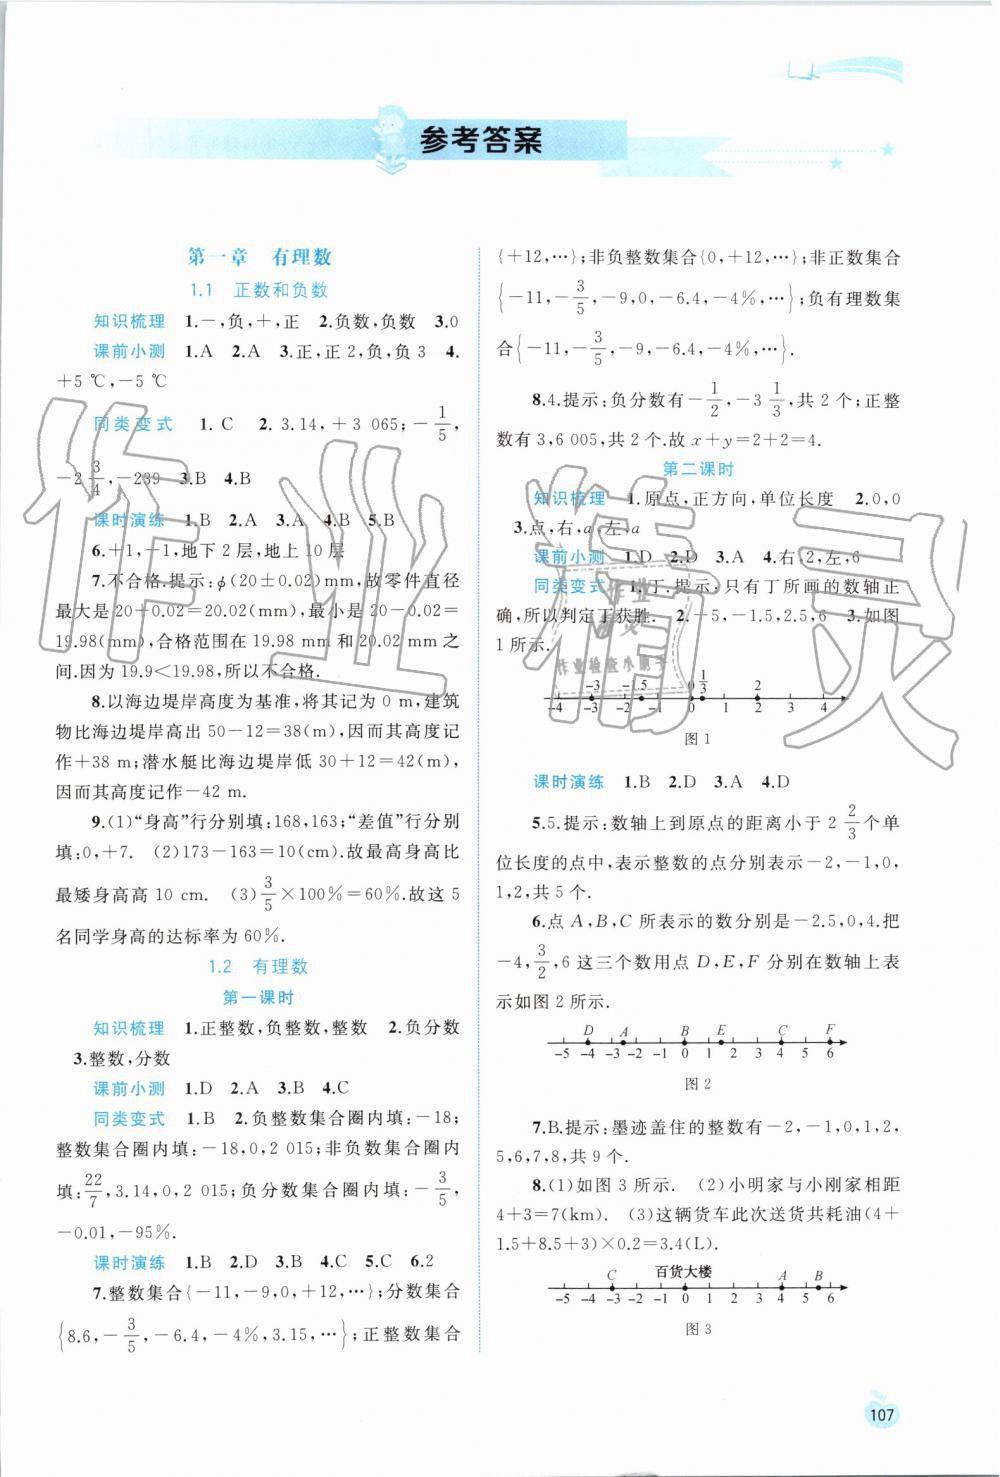 参考答案
第一章 有理数
1.1 正数和负数
知识梳理 1.－,负,＋,正 2.负数,负数 3.0
课前小测 1.A 2.A 3.正,正 2,负,负 3 4.
+5 ℃,-5 ℃
同类变式 1. C 2. 3.14,+3 065;-1/5,
-2 3/4,-239 3.B 4.B
课时演练 1.B 2.A 3.A 4.B 5.B
6.+1,-1,地下 2 层,地上 10 层
7.不合格.提示:ϕ(20±0.02) mm,故零件直径
最大是 20+0.02=20.02(mm),最小是 20-0.02=
19.98(mm),合格范围在 19.98 mm 和 20.02 mm 之
间.因为 19.9<19.98,所以不合格.
8.以海边堤岸高度为基准,将其记为 0 m,建筑
物比海边堤岸高出 50-12=38(m),因而其高度记
作+38 m;潜水艇比海边堤岸低 30+12=42(m),
因而其高度记作-42 m.
9.(1)“身高”行分别填:168,163;“差值”行分别
填:0,+7. (2)173-163=10(cm).故最高身高比
最矮身高高 10 cm. (3)3/5×100%=60%.故这 5
名同学身高的达标率为 60%.
1.2 有理数
第一课时
知识梳理 1.正整数,负整数,整数 2.负分数
3.整数,分数
课前小测 1.D 2.A 3.B 4.C
同类变式 1.B 2.负整数集合圈内填:-18;
整数集合圈内填:-18,0,2 015;非负数集合圈内
填:22/7,3.14,0,2 015;负分数集合圈内填:-3/5,
-0.01,-95%.
课时演练 1.B 2.D 3.B 4.C 5.C 6.2
7.整数集合{-11,-9,0,+12,…};分数集合
{8.6,-3/5,-6.4,-4%,3.15,…};正整数集合
{+12,…};非负整数集合{0,+12,…};非正数集合
{-11,-3/5,-9,0,-6.4,-4%,…};负有理数集
合{-11,-3/5,-9,-6.4,-4%,…}.
8.4.提示:负分数有-1/2,-3 1/3,共 2 个;正整
数有 3,6 005,共 2 个.故 x+y=2+2=4.
第二课时
知识梳理 1.原点,正方向,单位长度 2.0,0
3.点,右,a,左,a
课前小测 1.D 2.D 3.A 4.右,2,左,6
同类变式 1.丁.提示:只有丁所画的数轴正
确,所以判定丁获胜. 2.-5,-1.5,2.5,6 3.如图
1 所示.
-3 -1.5 0 1/3 2
-4 -3 -2 -1 0 1 2 3 4
图 1
课时演练 1.B 2.D 3.A 4.D
5.5.提示:数轴上到原点的距离小于 2 2/3 个单
位长度的点中,表示整数的点分别表示-2,-1,0,
1,2,共 5 个.
6.点 A,B,C 所表示的数分别是-2.5,0,4.把
-4,3/2,6 这三个数用点 D,E,F 分别在数轴上表
示如图 2 所示.
D A B E C F
-5 -4 -3 -2 -1 0 1 2 3 4 5 6
图 2
7.B.提示:墨迹盖住的整数有-2,-1,0,1,2,
5,6,7,8,共 9 个.
8.(1)如图 3 所示. (2)小明家与小刚家相距
4+3=7(km). (3)这辆货车此次送货共耗油(4+
1.5+8.5+3)×0.2=3.4(L).
C 百货大楼 A B
-5 -4 -3 -2 -1 0 1 2 3 4 5 6
图 3
107
作业精灵
作业
精灵
作业检查小助手